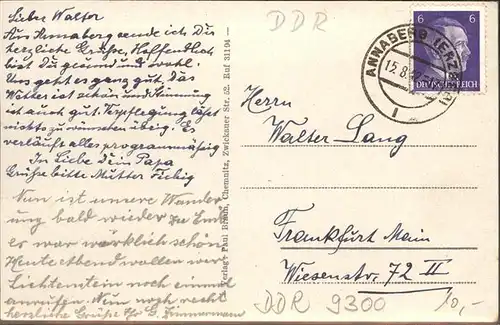 Lieber Walter
Aus Annaberg sende ich Dir
herzliche Grüße, Hoffentlich
bist Du gesund und wohl.
Uns geht es ganz gut. Das
Wetter ist schön und Stimmung
ist auch gut. Verpflegung läßt
nichts zu wünschen übrig. Es
verläuft alles programmäßig
In Liebe Dein Papa
Grüße bitte Mutter Fiebig
Nun ist unsere Wander
ung bald wieder zu Ende
es war wirklich schön
Heute Abend wollen wir
Lichtenstein noch einmal
anrufen. Nun noch recht
herzliche Grüße G. Zimmermann
Verlag Paul Chemnitz, Zwickauer Str. 52. Ruf 31194
DDR
ANNABERG (ERZGEB)
15.8.
6 6
DEUTSCHES REICH
Herrn
Walter Lang
Frankfurt Main
Wiesenstr. 72 II
DDR 9300 10,-